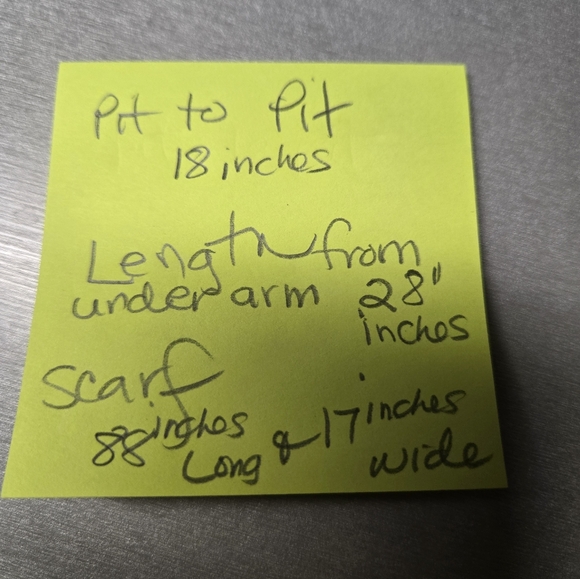 Pit to Pit
18 inches
Length from
under arm 28"
inches
scarf
88 inches
Long & 17 inches
wide